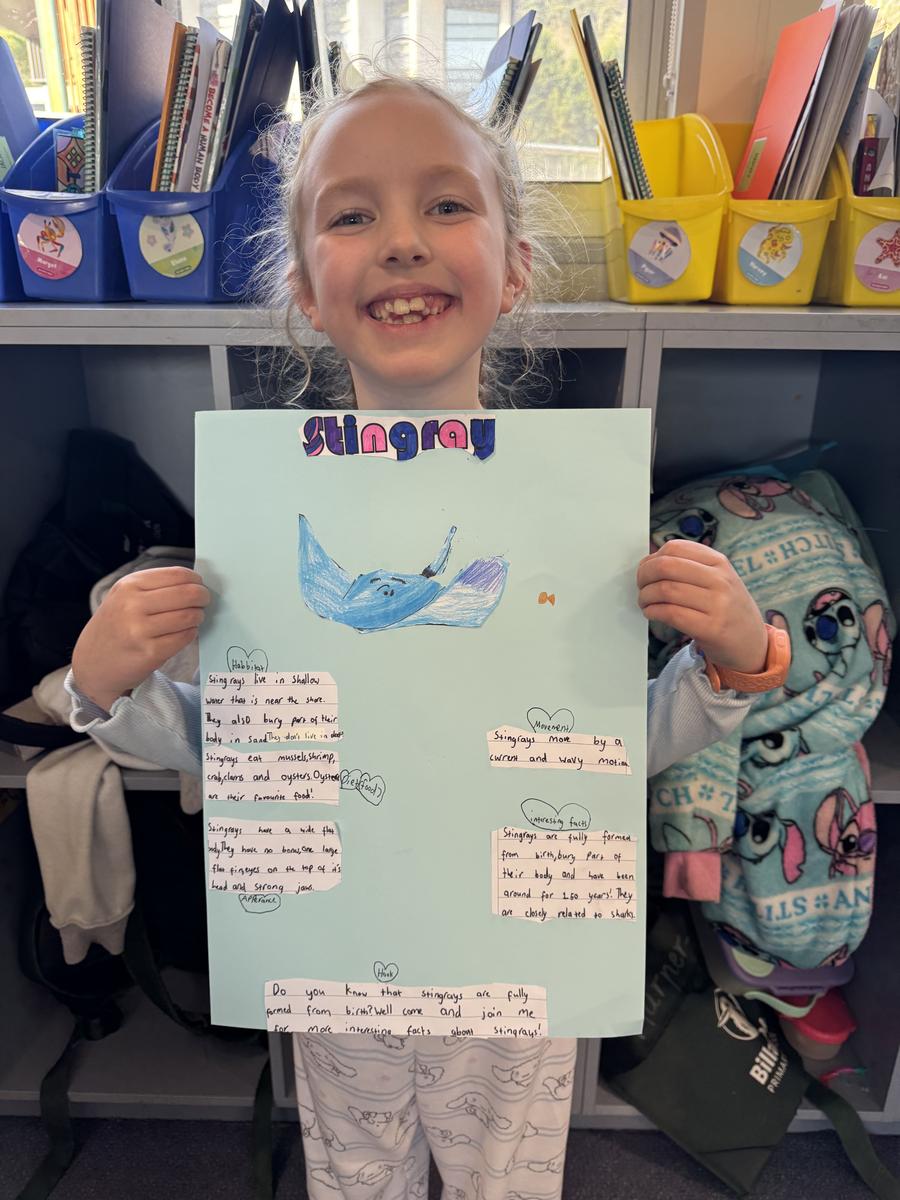 BECOME A HUMAN BODY
Stingray
Habbitat
Stingrays live in shallow
water that is near the shore.
They also bury part of their
body in sand They don't live in deep
Stingrays eat mussels,shrimp,
crab,clams and oysters.Oysters
are their favourite food!
Diet(food)
Stingrays have a wide flat
body.They have no bones,one large
flat fin,eyes on the top of it's
head and strong jaws.
Apperance
Movement
Stingrays move by a
current and wavy motion.
interesting facts
Stingrays are fully formed
from birth,bury part of
their body and have been
around for 150 years! They
are closely related to sharks.
Hook
Do you know that stingrays are fully
formed from birth? Well come and join me
for more interesting facts about stingrays!
Margot
Harvey
STITCH
PRIMARY